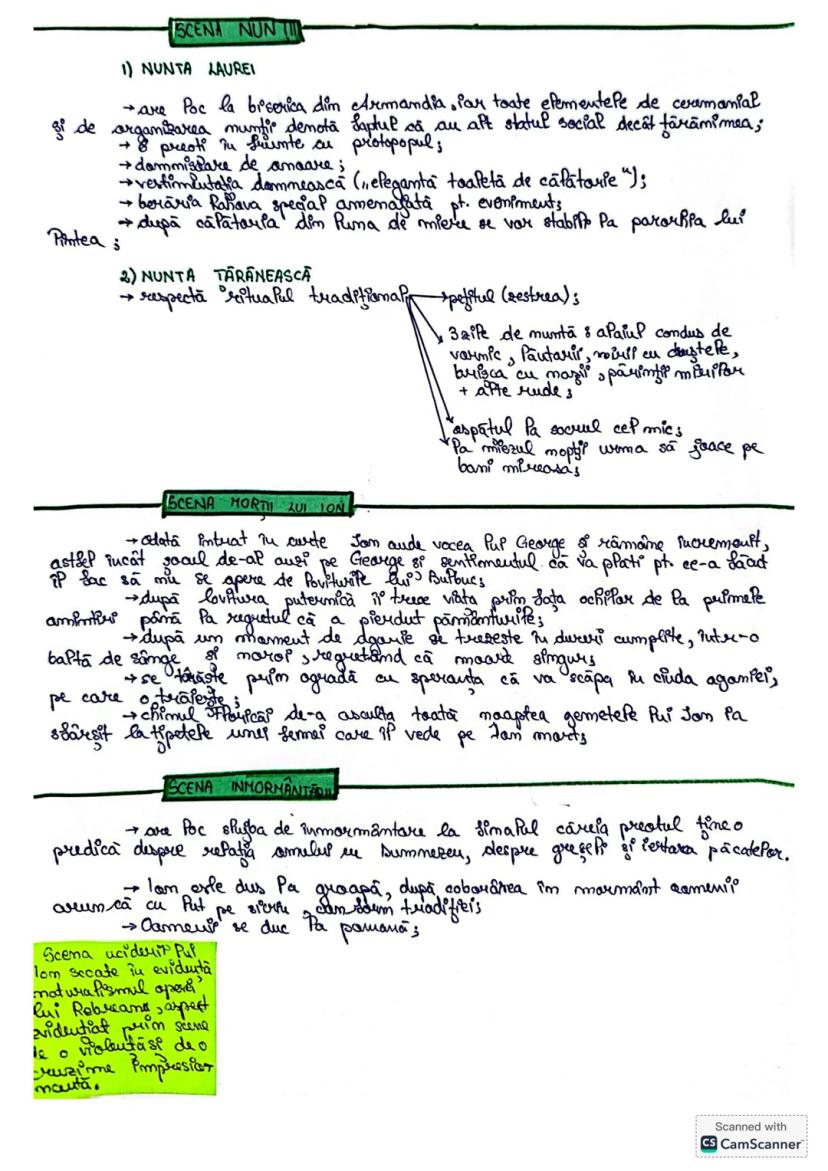 SCENA NUNȚII
1) NUNTA LAUREI
→ are loc la biserica din Armandia, iar toate elementele de ceremonial
și de organizarea nunții denotă faptul că au alt statul social decât țărănimea;
→ 8 preoți în frunte cu protopopul;
→ domnișoare de onoare;
→ vestimentația domnească („eleganta toaletă de călătorie");
→ berăria Rahova special amenajată pt. eveniment;
→ după călătoria din luna de miere se vor stabili la parorhia lui
Pintea;
2) NUNTA ȚĂRĂNEASCĂ
→ respectă ritualul tradițional → pețitul (zestrea);
3 zile de nuntă: alaiul condus de
vornic, lăutarii, mirii cu druștele,
brișca cu nașii, părinții mirilor
+ alte rude;
ospățul la socrul cel mic;
la miezul nopții urma să joace pe
bani mireasa;
SCENA MORȚII LUI ION
→ odată intrat în curte Ion aude vocea lui George și rămâne încremenit,
astfel încât șocul de-al auzi pe George și sentimentul că va plăti pt. ce-a făcut
îl fac să nu se apere de loviturile lui Bulbuc;
→ după lovitura puternică îi trece viața prin fața ochilor de la primele
amintiri până la regretul că a pierdut pământurile;
→ după un moment de agonie se trezește în dureri cumplite, într-o
baltă de sânge și noroi, regretând că moare singur;
→ se târăște prin ogradă cu speranța că va scăpa în ciuda agoniei,
pe care o trăiește;
→ chinul Floricăi de-a asculta toată noaptea gemetele lui Ion ia
sfârșit la țipetele unei femei care îl vede pe Ion mort;
SCENA INMORMÂNTĂRII
→ are loc slujba de înmormântare la finalul căreia preotul ține o
predică despre relația omului cu Dumnezeu, despre greșeli și iertarea păcatelor.
→ Ion este dus la groapă, după coborârea în mormânt oamenii
aruncă cu lut pe sicriu, conform tradiției;
→ Oamenii se duc la pomană;
Scena uciderii lui
Ion scoate în evidență
naturalismul operei
lui Rebreanu, aspect
evidențiat prin scene
de o violență și de o
cruzime impresio-
nantă.
Scanned with
CS CamScanner